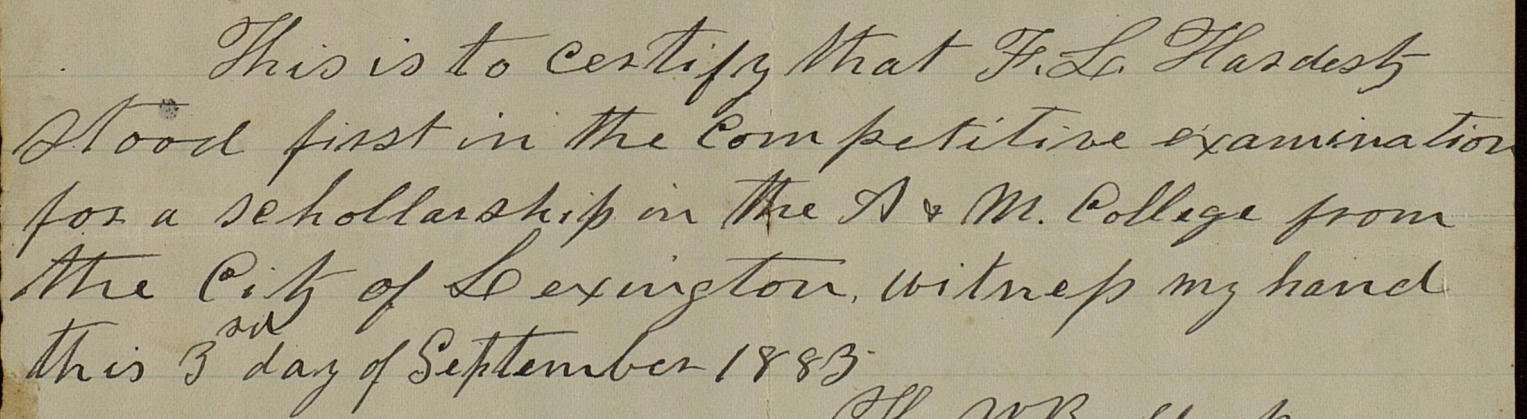 This is to certify that F. L. Hardesty
stood first in the Competitive examination
for a schollarship in the A & M. College from
the City of Lexington, witness my hand
this 3rd day of September 1883